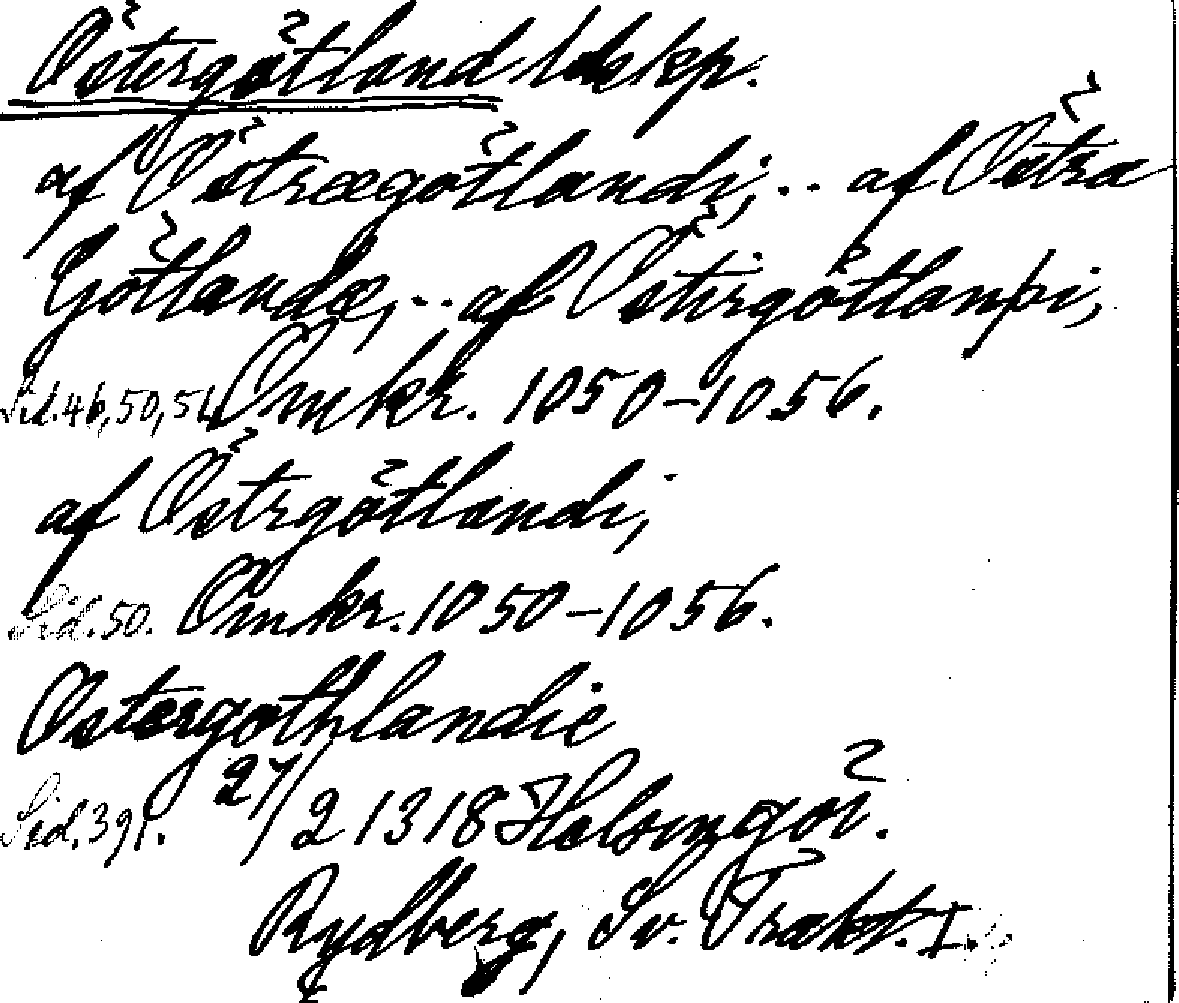 Östergötland ldskp.
af Östrægötlandi, .. af Östra
Götlandæ, .. af Östirgötlanþi,
Sid. 46, 50, 51. Omkr. 1050–1056.
af Östrgötlandi,
Sid. 50. Omkr. 1050–1056.
Ostergothlandie
Sid. 391. 27/2 1318 Helsingör.
Rydberg, Sv. Trakt. I.